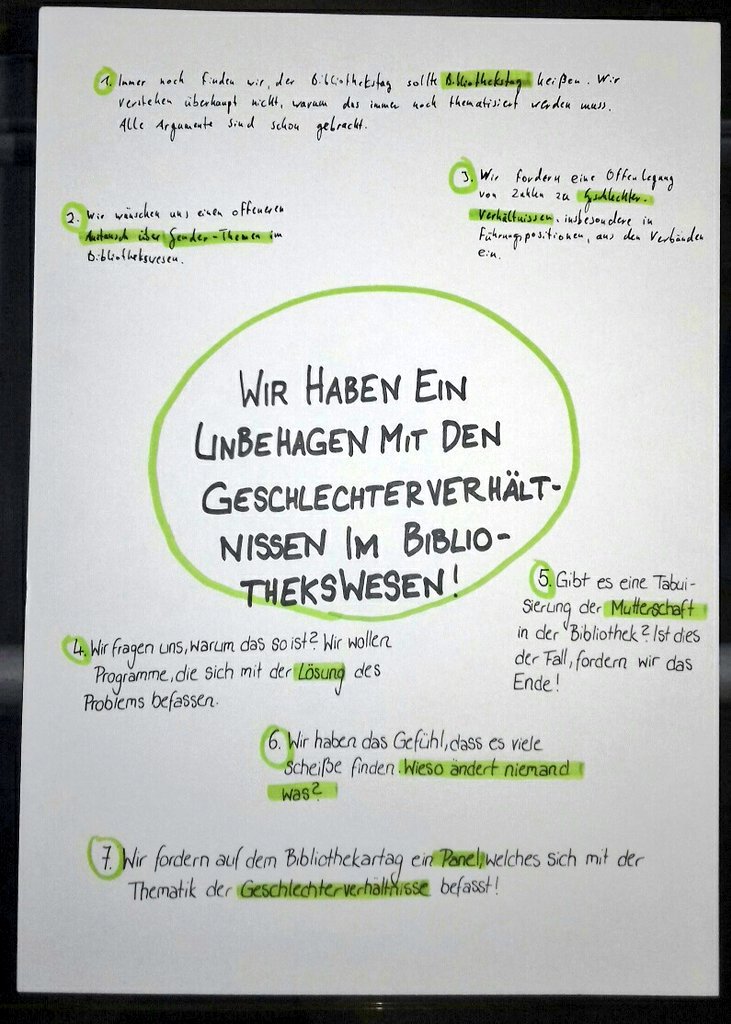 1. Immer noch finden wir, der Bibliothekstag sollte Bibliothekstag heißen. Wir
verstehen überhaupt nicht, warum das immer noch thematisiert werden muss.
Alle Argumente sind schon gebracht.
2. Wir wünschen uns einen offeneren
Austausch über Gender-Themen im
Bibliothekswesen.
3. Wir fordern eine Offenlegung
von Zahlen zu Geschlechter-
verhältnissen, insbesondere in
Führungspositionen, aus den Verbänden
ein.
WIR HABEN EIN
UNBEHAGEN MIT DEN
GESCHLECHTERVERHÄLT-
NISSEN IM BIBLIO-
THEKSWESEN!
4. Wir fragen uns, warum das so ist? Wir wollen
Programme, die sich mit der Lösung des
Problems befassen.
5. Gibt es eine Tabui-
sierung der Mutterschaft
in der Bibliothek? Ist dies
der Fall, fordern wir das
Ende!
6. Wir haben das Gefühl, dass es viele
Scheiße finden. Wieso ändert niemand
was?
7. Wir fordern auf dem Bibliothekartag ein Panel, welches sich mit der
Thematik der Geschlechterverhältnisse befasst!